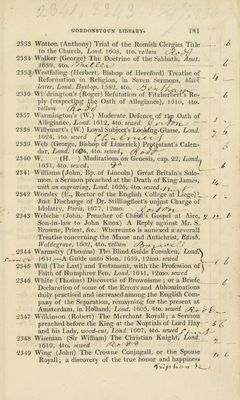 GORDONSTOUN LIBRARY. 181
2333 Wotton (Anthony) Trial of the Romish Clergies Title
to the Church, Lond. 1608, 4to. vellum
2334 Walker (George) The Doctrine of the Sabbath, Amst.
1639, 4to.
2335 Westfaling (Herbert, Bishop of Hereford) Treatise of
Reformation in Religion, in Seven Sermons, black
letter, Lond. Byshop, 1582, 4to.
2336 Widdrington's (Roger) Refutation of Fitzherbert's Re-
ply (respecting the Oath of Allegiance), 1616, 4to.
vellum
2337 Warmington's (W.) Moderate Defence of the Oath of
Allegiance, Lond. 1612, 4to. sewed
2338 Willymatt's (W.) Loyal Subject's Looking-Glasse, Lond.
1604, 4to. sewed
2339 Web (George, Bishop of Limerick) Protestant's Calen-
dar, Lond. 4to, sewed,
2340 W. (H. ) Meditations on Genesis, cap. 22, Lond.
1631, 4to, sewed,
2341 Williams (John, Bp. of Lincoln) Great Britain's Solo-
mon, a Sermon preached at the Death of King James,
with an engraving, Lond. 1625, 4to. sewed
2342 Worsley (E., Rector of the English College at Liege)
Just Discharge of Dr. Stillingfleet's unjust Charge of
Idolatry, Paris, 1677, 12mo.
2343 Welschie (John, Preacher of Christ's Gospel at Aire,
Son-in-law to John Knox) A Reply against Mr. S.
Browne, Priest, &c. Whereunto is annexed a severall
Treatise concerning the Masse and Antichrist, Edinb.
Waldegrave, 1602, 4to. vellum
2344 Warmstry (Thomas) The Blind Guide Forsaken, Lond.
1641.—A Guide unto Sion, 1639, 12mo. sewed
2345 Will (The Last) and Testament, with the Profession of
Faith of Humphrey Fen, Lond. 1641, 12mo. sewed
2346 White (Thomas) Discoverie of Brownisme; or a Briefe
Declaration of some of the Errors and Abhominations
daily practised and increased among the English Com-
pany of the Separation, remaining for the present at
Amsterdam, in Holland, Lond. 1605, 4to. sewed
2347 Wilkinson (Robert) The Merchant Royall; a Sermon
preached before the King at the Nuptials of Lord Hay
and his Lady, wood-cut, Lond. 1607, 4to. sewed
2348 Wiseman (Sir William) The Christian Knight, Lond.
1619, 4to. sewed
2349 Wing (John) The Crowne Conjugall, or the Spouse
Royall; a discovery of the true honor and happiness